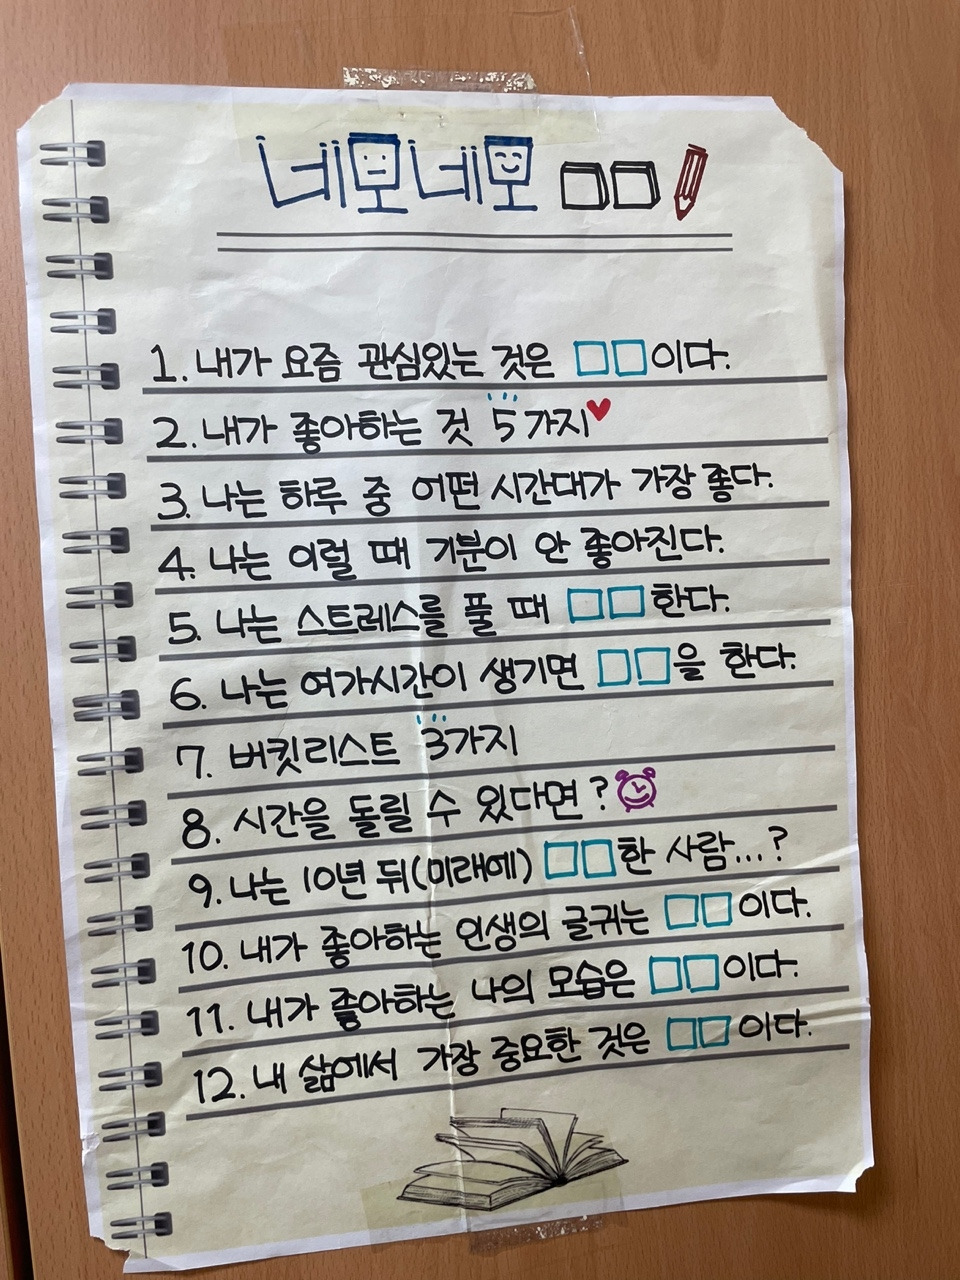 네모네모 □□
1. 내가 요즘 관심있는 것은 □□이다.
2. 내가 좋아하는 것 5가지
3. 나는 하루 중 어떤 시간대가 가장 좋다.
4. 나는 이럴 때 기분이 안 좋아진다.
5. 나는 스트레스를 풀 때 □□한다.
6. 나는 여가시간이 생기면 □□을 한다.
7. 버킷리스트 3가지
8. 시간을 돌릴 수 있다면?
9. 나는 10년 뒤(미래에) □□한 사람...?
10. 내가 좋아하는 인생의 글귀는 □□이다.
11. 내가 좋아하는 나의 모습은 □□이다.
12. 내 삶에서 가장 중요한 것은 □□이다.